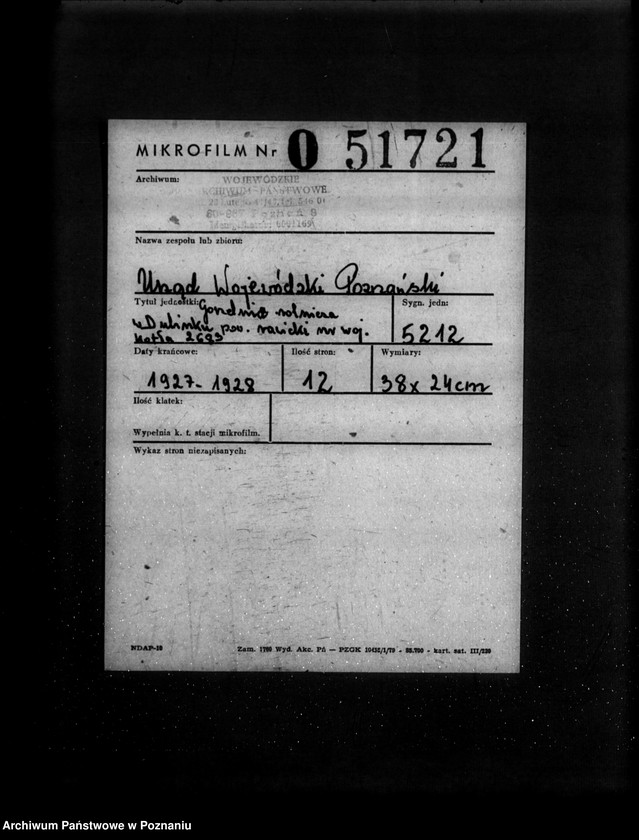 MIKROFILM Nr 0 51721
Archiwum:
WOJEWÓDZKIE
ARCHIWUM PAŃSTWOWE
Nazwa zespołu lub zbioru:
Urząd Wojewódzki Poznański
Tytuł jednostki: Gorzelnia rolnicza
w Dubinku pow. rawicki nr woj.
kotła 2683
Sygn. jedn:
5212
Daty krańcowe:
1927-1928
Ilość stron:
12
Wymiary:
38x24cm
Ilość klatek:
Wypełnia k. t. stacji mikrofilm.
Wykaz stron niezapisanych:
NDAP-10
Zam. 1700 Wyd. Akc. Pń — PZGK
kart. sat. III/220
Archiwum Państwowe w Poznaniu